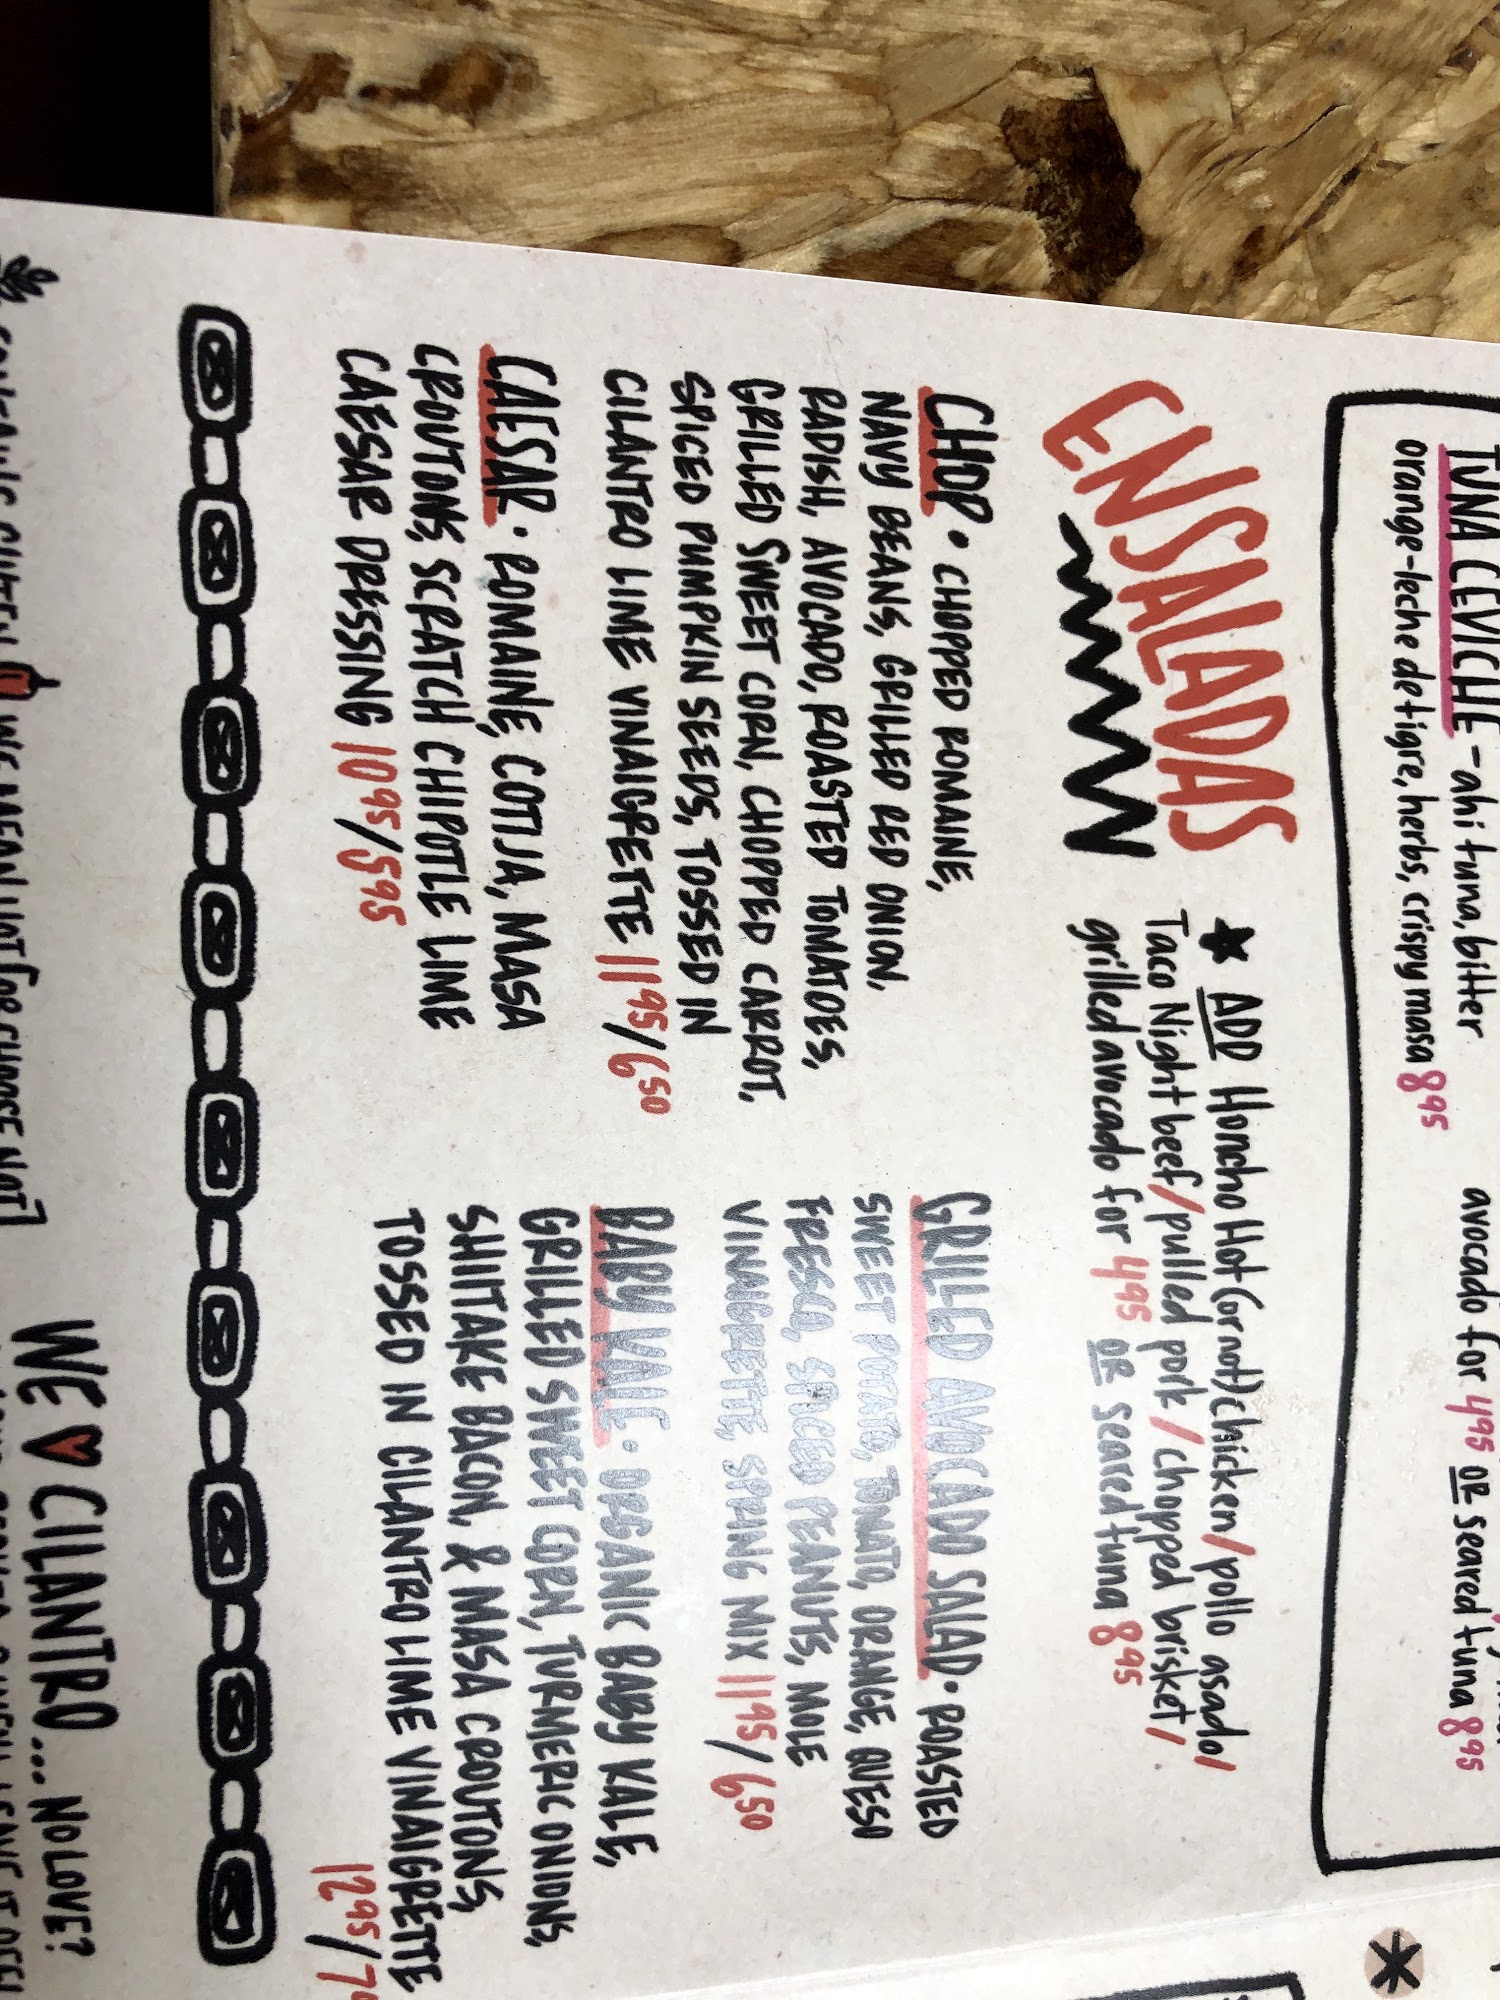 TUNA CEVICHE - ahi tuna, bitter
orange-leche de tigre, herbs, crispy masa 8 95
avocado for 4 95 OR seared tuna 8 95
ENSALADAS
★ ADD Honcho Hot (or not) chicken / pollo asado /
Taco Night beef / pulled pork / chopped brisket /
grilled avocado for 4 95 OR seared tuna 8 95
CHOP · CHOPPED ROMAINE,
NAVY BEANS, GRILLED RED ONION,
RADISH, AVOCADO, ROASTED TOMATOES,
GRILLED SWEET CORN, CHOPPED CARROT,
SPICED PUMPKIN SEEDS, TOSSED IN
CILANTRO LIME VINAIGRETTE 11 95 / 6 50
CAESAR · ROMAINE, COTIJA, MASA
CROUTONS, SCRATCH CHIPOTLE LIME
CAESAR DRESSING 10 95 / 5 95
GRILLED AVOCADO SALAD · ROASTED
SWEET POTATO, TOMATO, ORANGE, QUESO
FRESCO, SPICED PEANUTS, MOLE
VINAIGRETTE, SPRING MIX 11 95 / 6 50
BABY KALE · ORGANIC BABY KALE,
GRILLED SWEET CORN, TURMERIC ONIONS,
SHIITAKE BACON, & MASA CROUTONS,
TOSSED IN CILANTRO LIME VINAIGRETTE
12 95 / 7
WE MEAN NOT for CHOOSE NOT]
WE ♥ CILANTRO... NO LOVE?